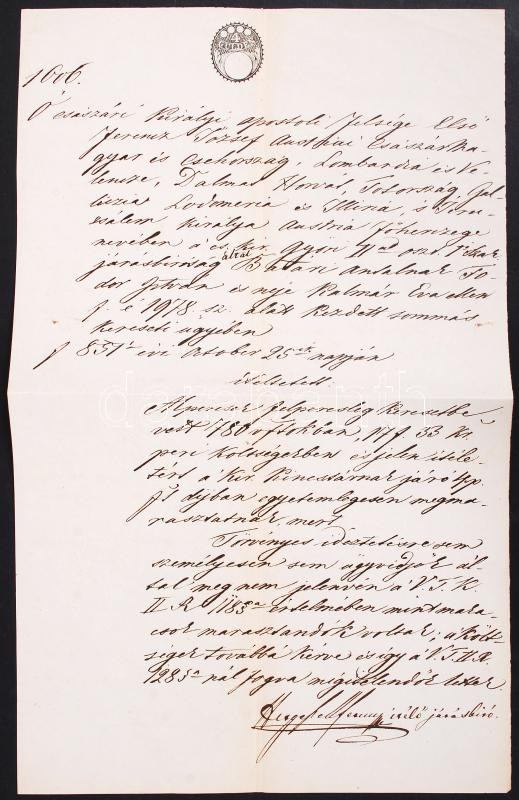 1606.
Ő császári Királyi apostoli Felsége Első
Ferencz József Austriai Császár Ma-
gyar és Csehország, Lombardia és Ve-
lencze, Dalmát Horvát, Tótország, Gal-
liczia Lodomeria és Illiria, s Jeru-
zsálem Királya Austria Főherczege
nevében a cs. kir. Győri II od oszt.
járásbiróság által Antalnak To-
dor István és neje Kalmár Éva ellen
f. é 1978 sz. alatt kezdett sommás
kereseti ügyében
851 évi October 25 napján
itéltetett
Alperesek felperesleg keresetbe
vett 780 vftokban, 17 f. 33 Kr
peri költségekben és jelen itéle-
tért a Kir. Kincstárnak járó
díjban egyetemlegesen megma-
rasztatnak mert
Törvényes idéztetésre sem
személyesen sem ügyvédjök ál-
tal meg nem jelenvén a V. T. K.
II R 118 értelmében mint maka-
csok marasztandók voltak; a Költ-
ségek továbbá kérve és így a V. T. II R.
128 nál fogva megitélendők lettek.
Ferencz itélő járásbiró.
darabanth